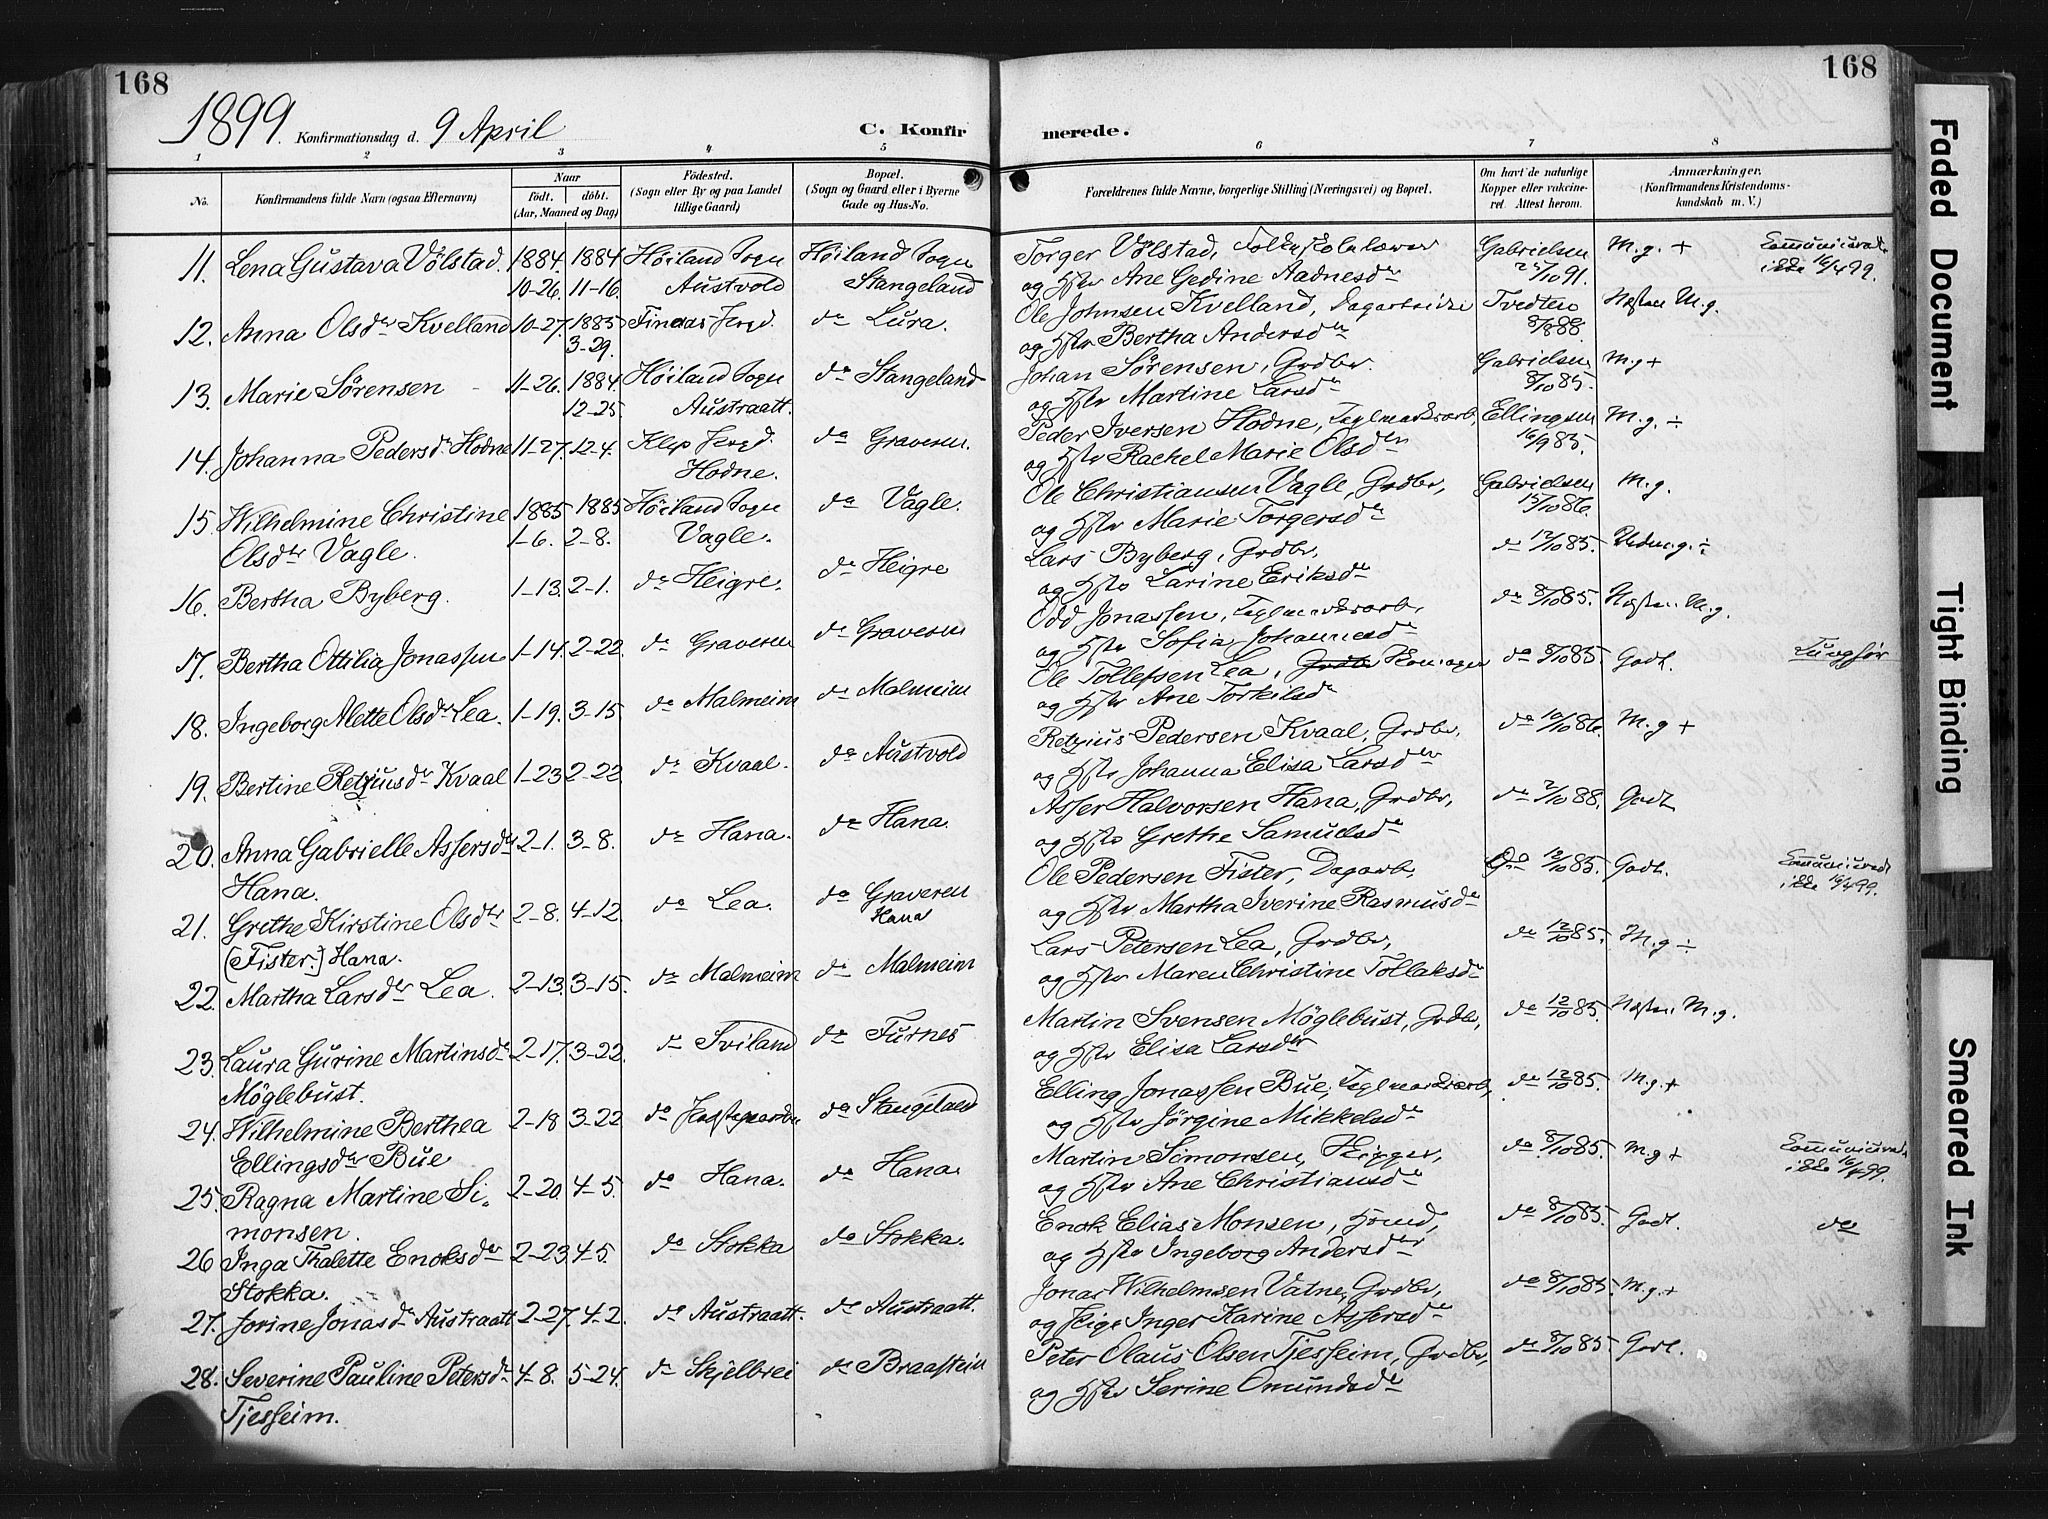 168
168
1899. Konfirmationsdag d. 9 April
C. Konfir
merede.
1 2 3 4 5 6 7 8
No.
Konfirmandens fulde Navn (ogsaa Efternavn)
Naar
födt. döbt.
(Aar, Maaned og Dag)
Födested.
(Sogn eller By og paa Landet
tillige Gaard)
Bopæl.
(Sogn og Gaard eller i Byerne
Gade og Hus-No.
Forældrenes fulde Navne, borgerlige Stilling (Næringsvei) og Bopæl.
Om havt de naturlige
Kopper eller vakcine-
ret. Attest herom.
Anmærkninger.
(Konfirmandens Kristendoms-
kundskab m. V.)
11. Lena Gustava Völstad. 1884. 1884 Höiland Sogn Höiland Sogn Torger Völstad, Folkeskolelærer Gabrielsen M.g. +
10-26. 11-16. Austvold Stangeland og Hstr Ane Gedine Aadnesdr /10 91. ikke 16/4 99.
12. Anna Olsdr Kvelland 10-27. 1885 Finaas Prgd. do Lura. Ole Johnsen Kvelland, Dagarbeider Tvedten Næsten M.g.
3-29. og Hstr Bertha Andersdr 8/8 88.
13. Marie Sörensen 11-26. 1884 Höiland Sogn do Stangeland Johan Sörensen, Grdbr. Gabrielsen M.g +
12-25. Austraatt. og Hstr Martine Larsdr 8/10 85.
14. Johanna Pedersdr Hodne 11-27. 12-4. Klep Prgd do Graveren. Peder Iversen Hodne, Teglværksarb, Ellingsen M.g. ÷
Hodne. og Hstr Rachel Marie Olsdr 16/9 85.
15. Wilhelmine Christine 1885 1885 Höiland Sogn do Vagle. Ole Christiansen Vagle, Grdbr, Gabrielsen M.g.
Olsdr Vagle. 1-6. 2-8. Vagle. og Hstr Marie Torgersdr 15/10 86.
16. Bertha Byberg. 1-13. 2-1. do Heigre. do Heigre Lars Byberg, Grdbr, do 12/10 85. Udm.g. ÷
og Hstr Larine Eriksdr
17. Bertha Ottilia Jonassen 1-14. 2-22. do Graveren do Graveren Odd Jonassen, Teglværksarb, do 8/10 85. Næsten M.g.
og Hstr Sofia Johannesdr
18. Ingeborg Alette Olsdr Lea. 1-19. 3-15. do Malmeim do Malmeim Ole Tollefsen Lea, Grdbr do 8/10 85. Godt. Tunghör
og Hstr Ane Torkilsdr
19. Bertine Retziusdr Kvaal 1-23 2-22. do Kvaal. do Austvold Retzius Pedersen Kvaal, Grdbr, do 10/10 86. M.g +
og Hstr Johanna Elisa Larsdr
20. Anna Gabrielle Assersdr 2-1. 3-8. do Hana. do Hana. Asser Halvorsen Hana, Grdbr, do 2/10 88. Godt
Hana. og Hstr Grethe Samuelsdr
21. Grethe Kirstine Olsdr 2-8. 4-12. do Lea. do Graveren Ole Pedersen Fister, Dagarb, do 12/10 85. Godt.
(Fister.) Hana. Hana og Hstr Martha Iverine Rasmusdr ikke 16/4 99.
22. Martha Larsdr Lea. 2-13. 3-15. do Malmeim do Malmeim Lars Petersen Lea, Grdbr, do 12/10 85. M.g ÷
og Hstr Maren Christine Tollaksdr
23. Laura Gurine Martinsdr 2-17. 3-22. do Sviland do Furnes Martin Svensen Möglebust, Grdbr, do 12/10 85. Næsten M.g.
Möglebust. og Hstr Elisa Larsdr
24. Wilhelmine Berthea 2-18 3-22 do Præstegaarden do Stangeland Elling Jonassen Bue, Teglværksarb, do 12/10 85. M.g. +
Ellingsdr Bue og Hstr Jörgine Mikkelsdr
25. Ragna Martine Si- 2-20. 4-5. do Hana. do Hana. Martin Simonsen, do 8/10 85. M.g +
monsen. og Hstr Ane Christiansdr ikke 16/4 99.
26 Inga Thalette Enoksdr 2-23. 4-5. do Stokka do Stokka. Enok Elias Monsen, do 8/10 85. Godt. do
Stokka. og Hstr Ingeborg Andersdr
27. Jorine Jonasdr Austraatt 2-27. 4-2. do Austraatt. do Austraatt. Jonas Wilhelmsen Vatne, Grdbr, do 8/10 85. M.g. +
og Pige Inger Karine Assersdr
28. Severine Pauline Petersdr 4-8. 5-24. do Skjelbrei do Braastein Peter Olaus Olsen Tjessheim, Grdbr, do 8/10 85 Godt.
Tjessheim. og Hstr Serine Omundsdr
Faded Document
Tight Binding
Smeared Ink